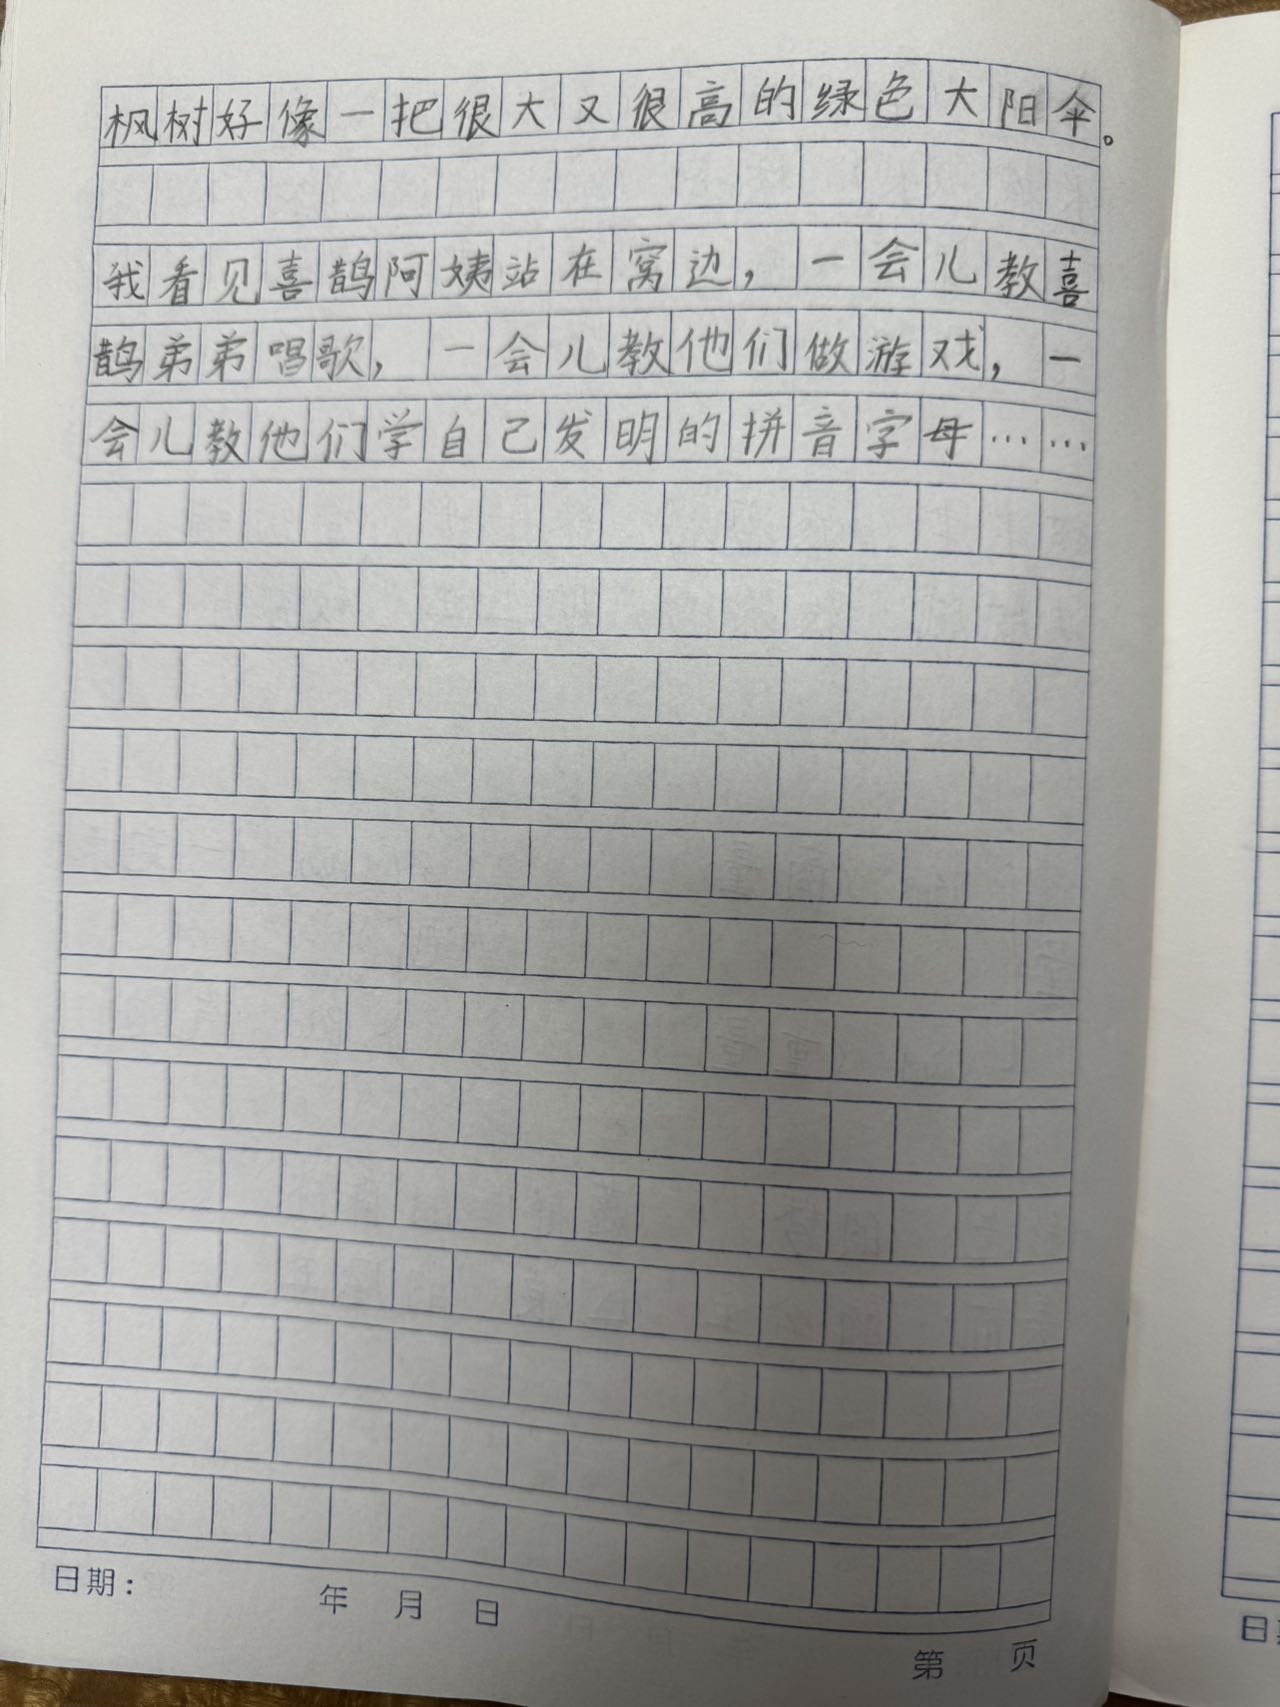 枫树好像一把很大又很高的绿色大阳伞。
我看见喜鹊阿姨站在窝边，一会儿教喜
鹊弟弟唱歌，一会儿教他们做游戏，一
会儿教他们学自己发明的拼音字母……
日期： 年 月 日
第 页
日